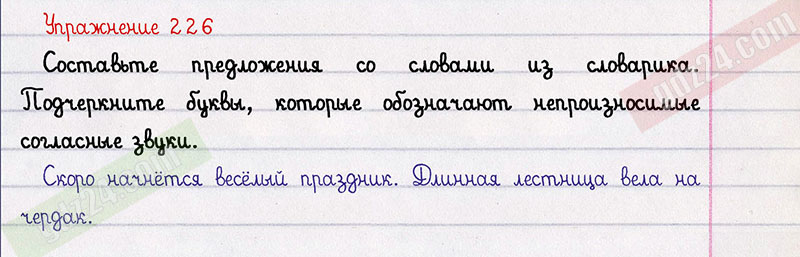 Упражнение 226
Составьте предложения со словами из словарика.
Подчеркните буквы, которые обозначают непроизносимые
согласные звуки.
Скоро начнётся весёлый праздник. Длинная лестница вела на
чердак.
gdz24.com
gdz24.com